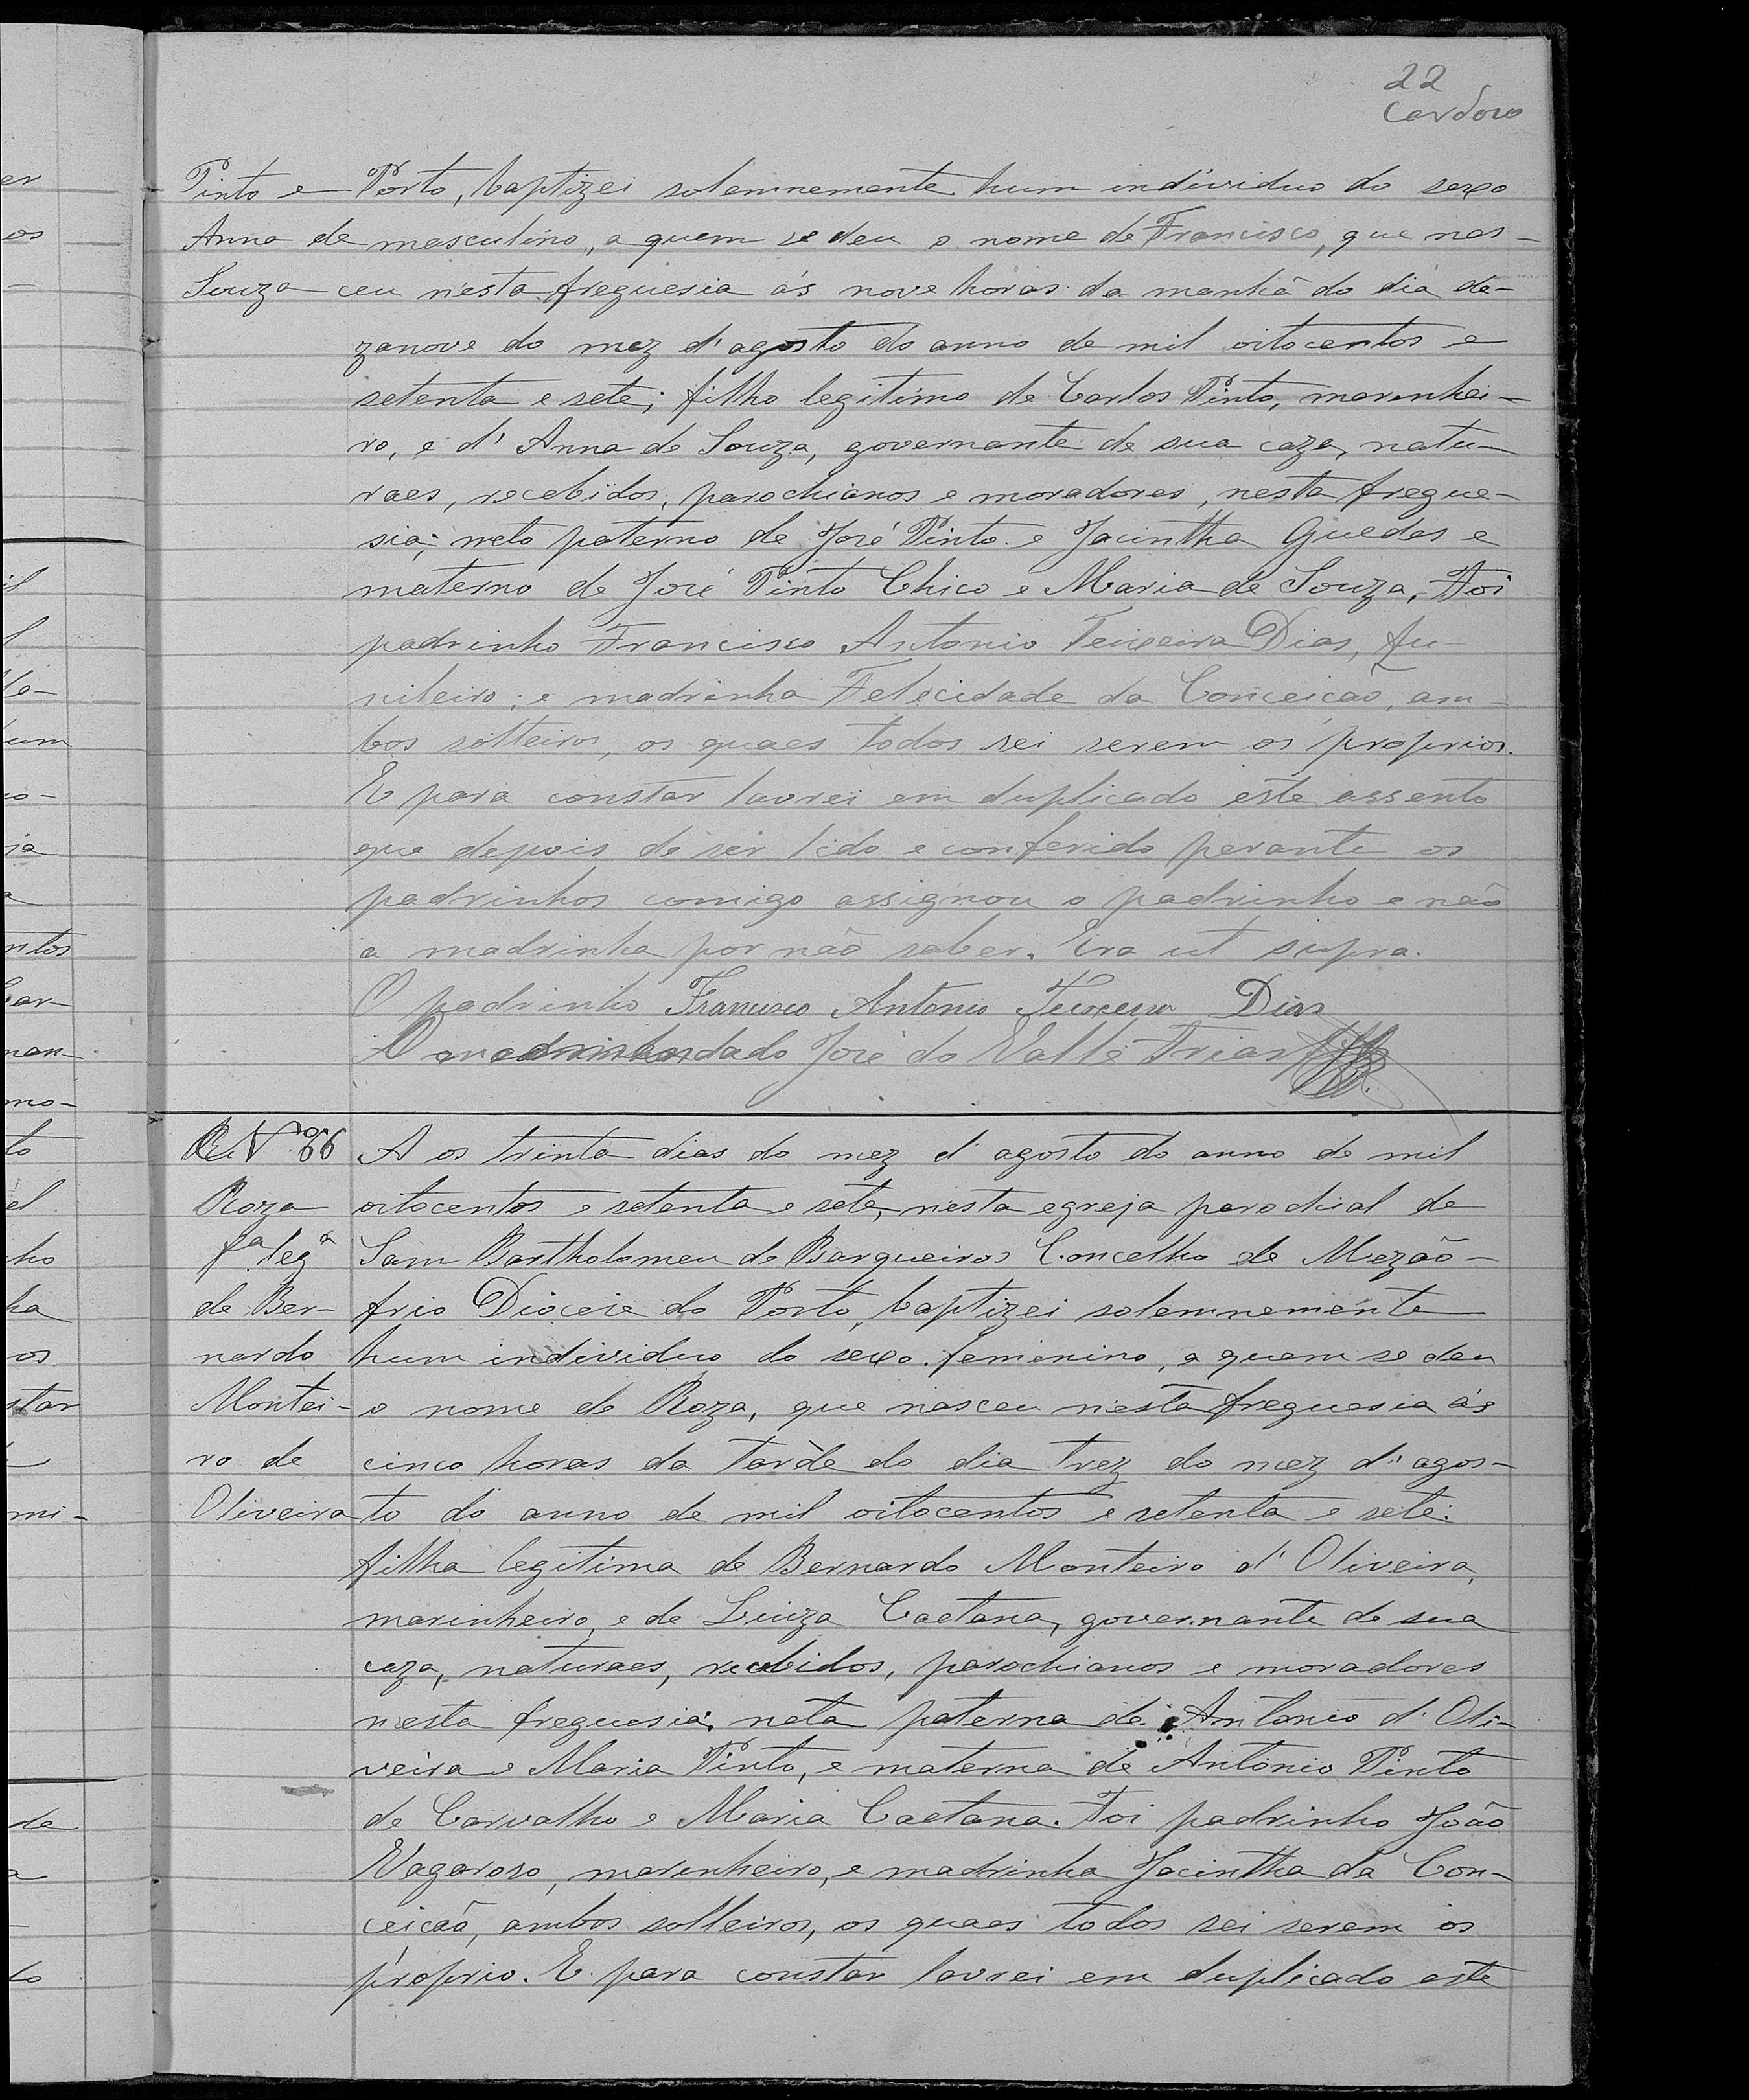 22
Cardoso
Pinto e
Anna de
Souza
Porto, baptizei solemnemente hum individuo do sexo
masculino, a quem se deu o nome de Francisco, que nas-
ceu n'esta freguesia ás nove horas da manhã do dia de-
zanove do mez d'agosto do anno de mil oitocentos e
setenta e sete; filho legitimo de Carlos Pinto, marinhei-
ro, e d'Anna de Souza, governante de sua caza, natu-
raes, recebidos, parochianos e moradores, nesta fregue-
sia; neto paterno de José Pinto e Jacintha Guedes e
materno de José Pinto Chico e Maria de Souza, Foi
padrinho Francisco Antonio Teixeira Dias, fu-
nileiro; e madrinha Felecidade da Conceicão, am-
bos solteiros, os quaes todos sei serem os proprios.
E para constar lavrei em duplicado este assento
que depois de ser lido e conferido perante os
padrinhos comigo assignou o padrinho e não
a madrinha por não saber. Era ut supra.
O padrinho Francisco Antonio Teixeira Dias
José do Valle Frias
Nº 66
Roza
fª legª
de Ber-
nardo
Montei-
ro de
Oliveira
A os trinta dias do mez d'agosto do anno de mil
oitocentos e setenta e sete, nesta egreja parochial de
Sam Bartholomeu de Barqueiros Concelho de Mezão-
frio Diocese do Porto, baptizei solemnemente
hum individuo do sexo femenino, a quem se deu
o nome de Roza, que nasceu n'esta freguesia ás
cinco horas da tarde do dia trez do mez d'agos-
to do anno de mil oitocentos e setenta e sete:
filha legitima de Bernardo Monteiro d'Oliveira,
marinheiro, e de Luiza Caetana, governante de sua
caza, naturaes, recebidos, parochianos e moradores
nesta freguesia; neta paterna de Antonio d'Oli-
veira e Maria Pinto, e materna de Antonio Pinto
de Carvalho e Maria Caetana. Foi padrinho João
Vagaroso, marenheiro, e madrinha Jacintha da Con-
ceicão, ambos solteiros, os quaes todos sei serem os
proprio. E para constar lavrei em duplicado este